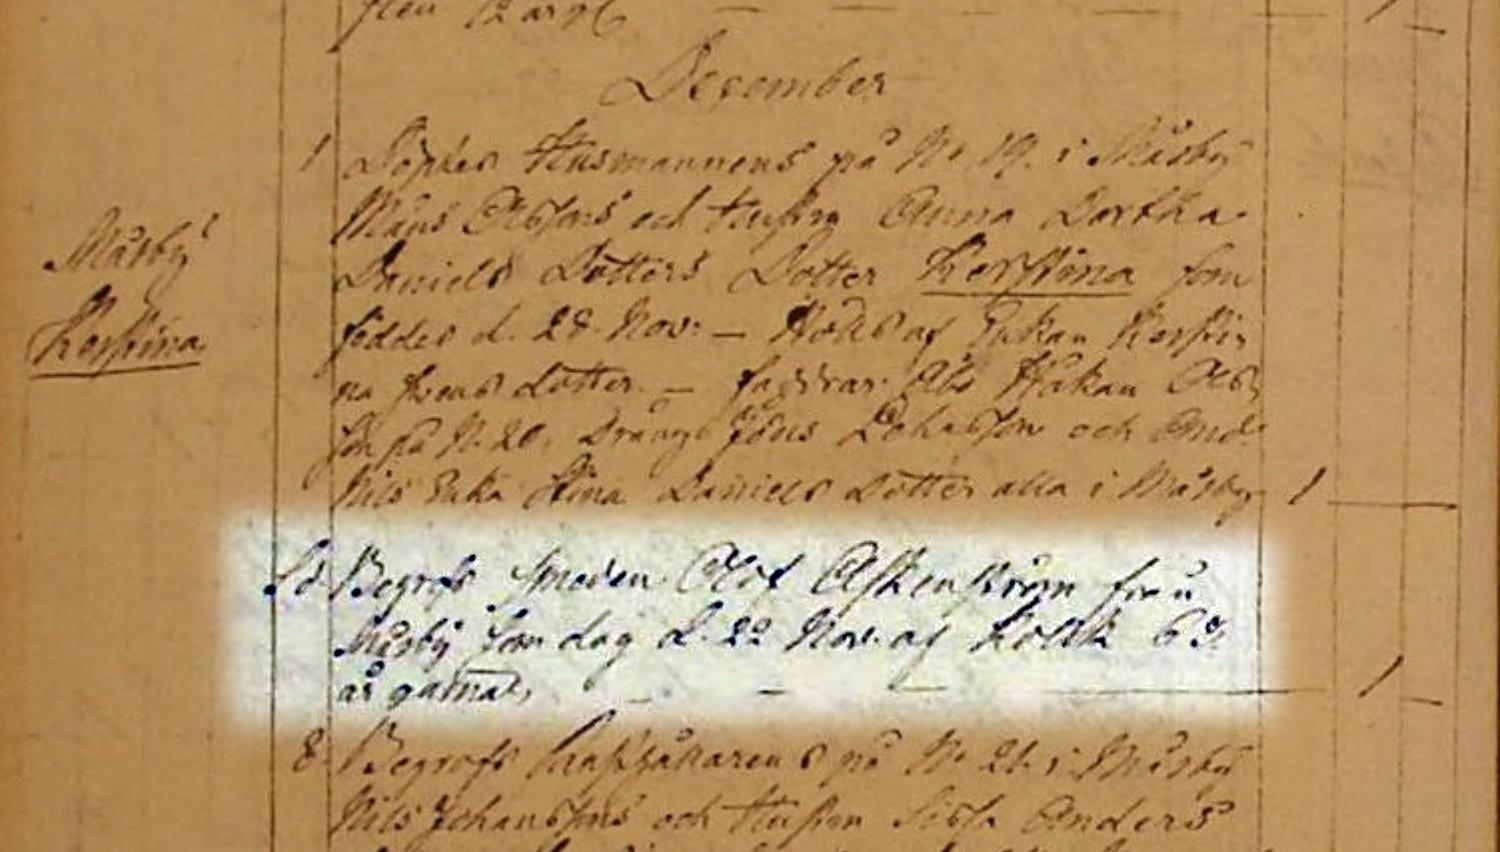 12 år
December
1 Döptes Husmannens på N: 19. i Måsby
Måns Olssons och Hustru Anna Dortha
Daniels Dotters Dotter Kerstina som
Måsby
Kerstina
föddes d. 28 Nov: — af Enkan Kersti
na Dotter. — Håkan Ols
son på N. 20. Dräng Jöns och
Nils Enka Stina Daniels Dotter alla i Måsby 1
Begrofs Smeden Olof Askenström från
Måsby som dog d. 22 Nov. af Kolik 63
år gammal, — — — 1 —
8 Begrofs på N: 21. i Måsby
Nils Johanssons och Hustrun Sissa Anders